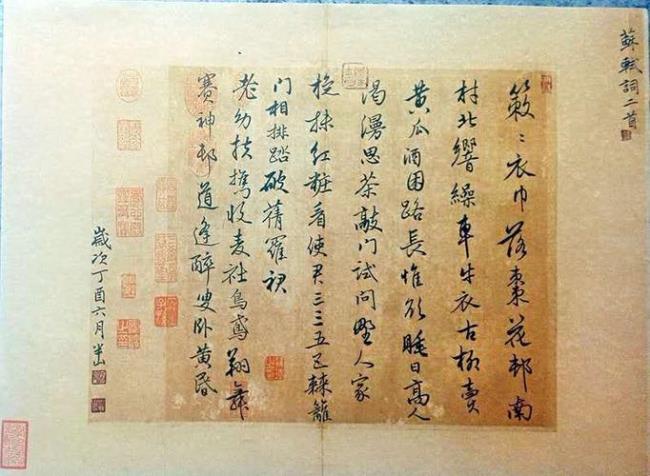 蘇軾詞二首
簌〻衣巾落棗花邨南
村北響繰車牛衣古柳賣
黄瓜酒困路長惟欲睡日高人
渴漫思茶敲門試問野人家
旋抹红粧看使君三三五〻棘籬
门相排踏破蒨羅裙
老幼扶攜收麦社烏鳶翔舞
賽神邨道逢醉叟卧黄昏
歲次丁酉六月